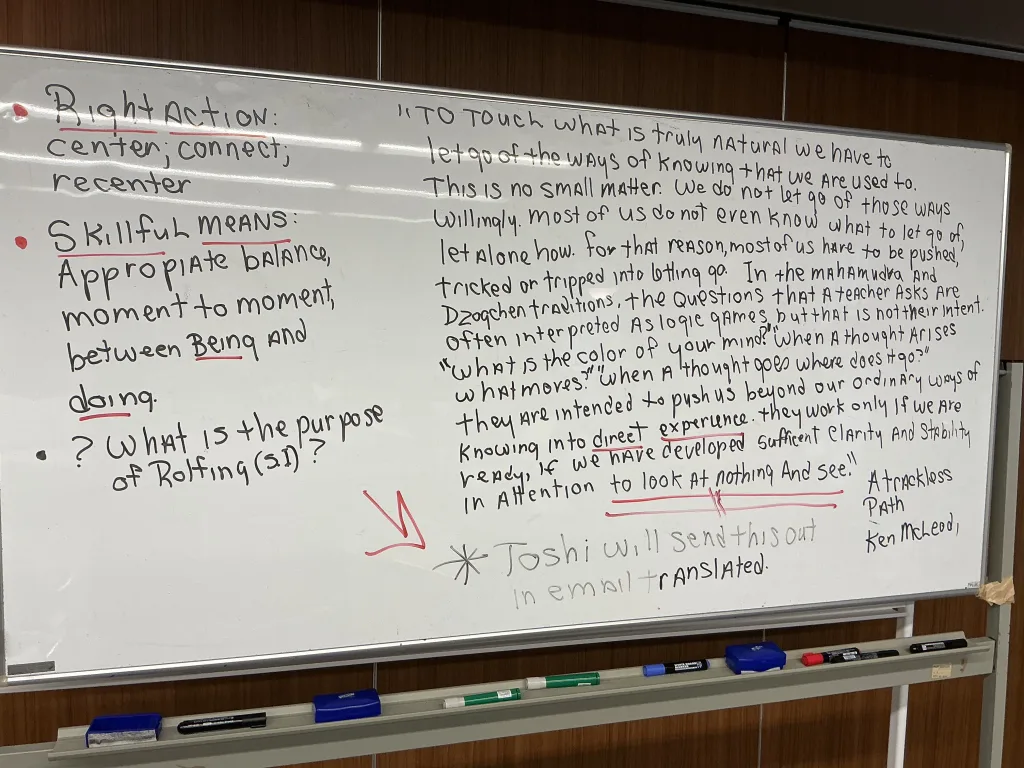 • Right Action:
center; connect;
recenter
• Skillful Means:
Appropiate balance,
moment to moment,
between Being and
doing.
• ? What is the purpose
of Rolfing (SI) ?
"To touch what is truly natural we have to
let go of the ways of knowing that we are used to.
This is no small matter. We do not let go of those ways
willingly. Most of us do not even know what to let go of,
let alone how. For that reason, most of us have to be pushed,
tricked or tripped into letting go. In the mahamudra and
Dzogchen traditions, the questions that a teacher asks are
often interpreted as logic games, but that is not their intent.
"What is the color of your mind?" "When a thought arises
what moves?" "When a thought goes where does it go?"
they are intended to push us beyond our ordinary ways of
knowing into direct experience. They work only if we are
ready, If we have developed sufficent clarity and stability
in attention to look at nothing and see."
A trackless
Path
Ken McLeod,
* Toshi will send this out
in email translated.